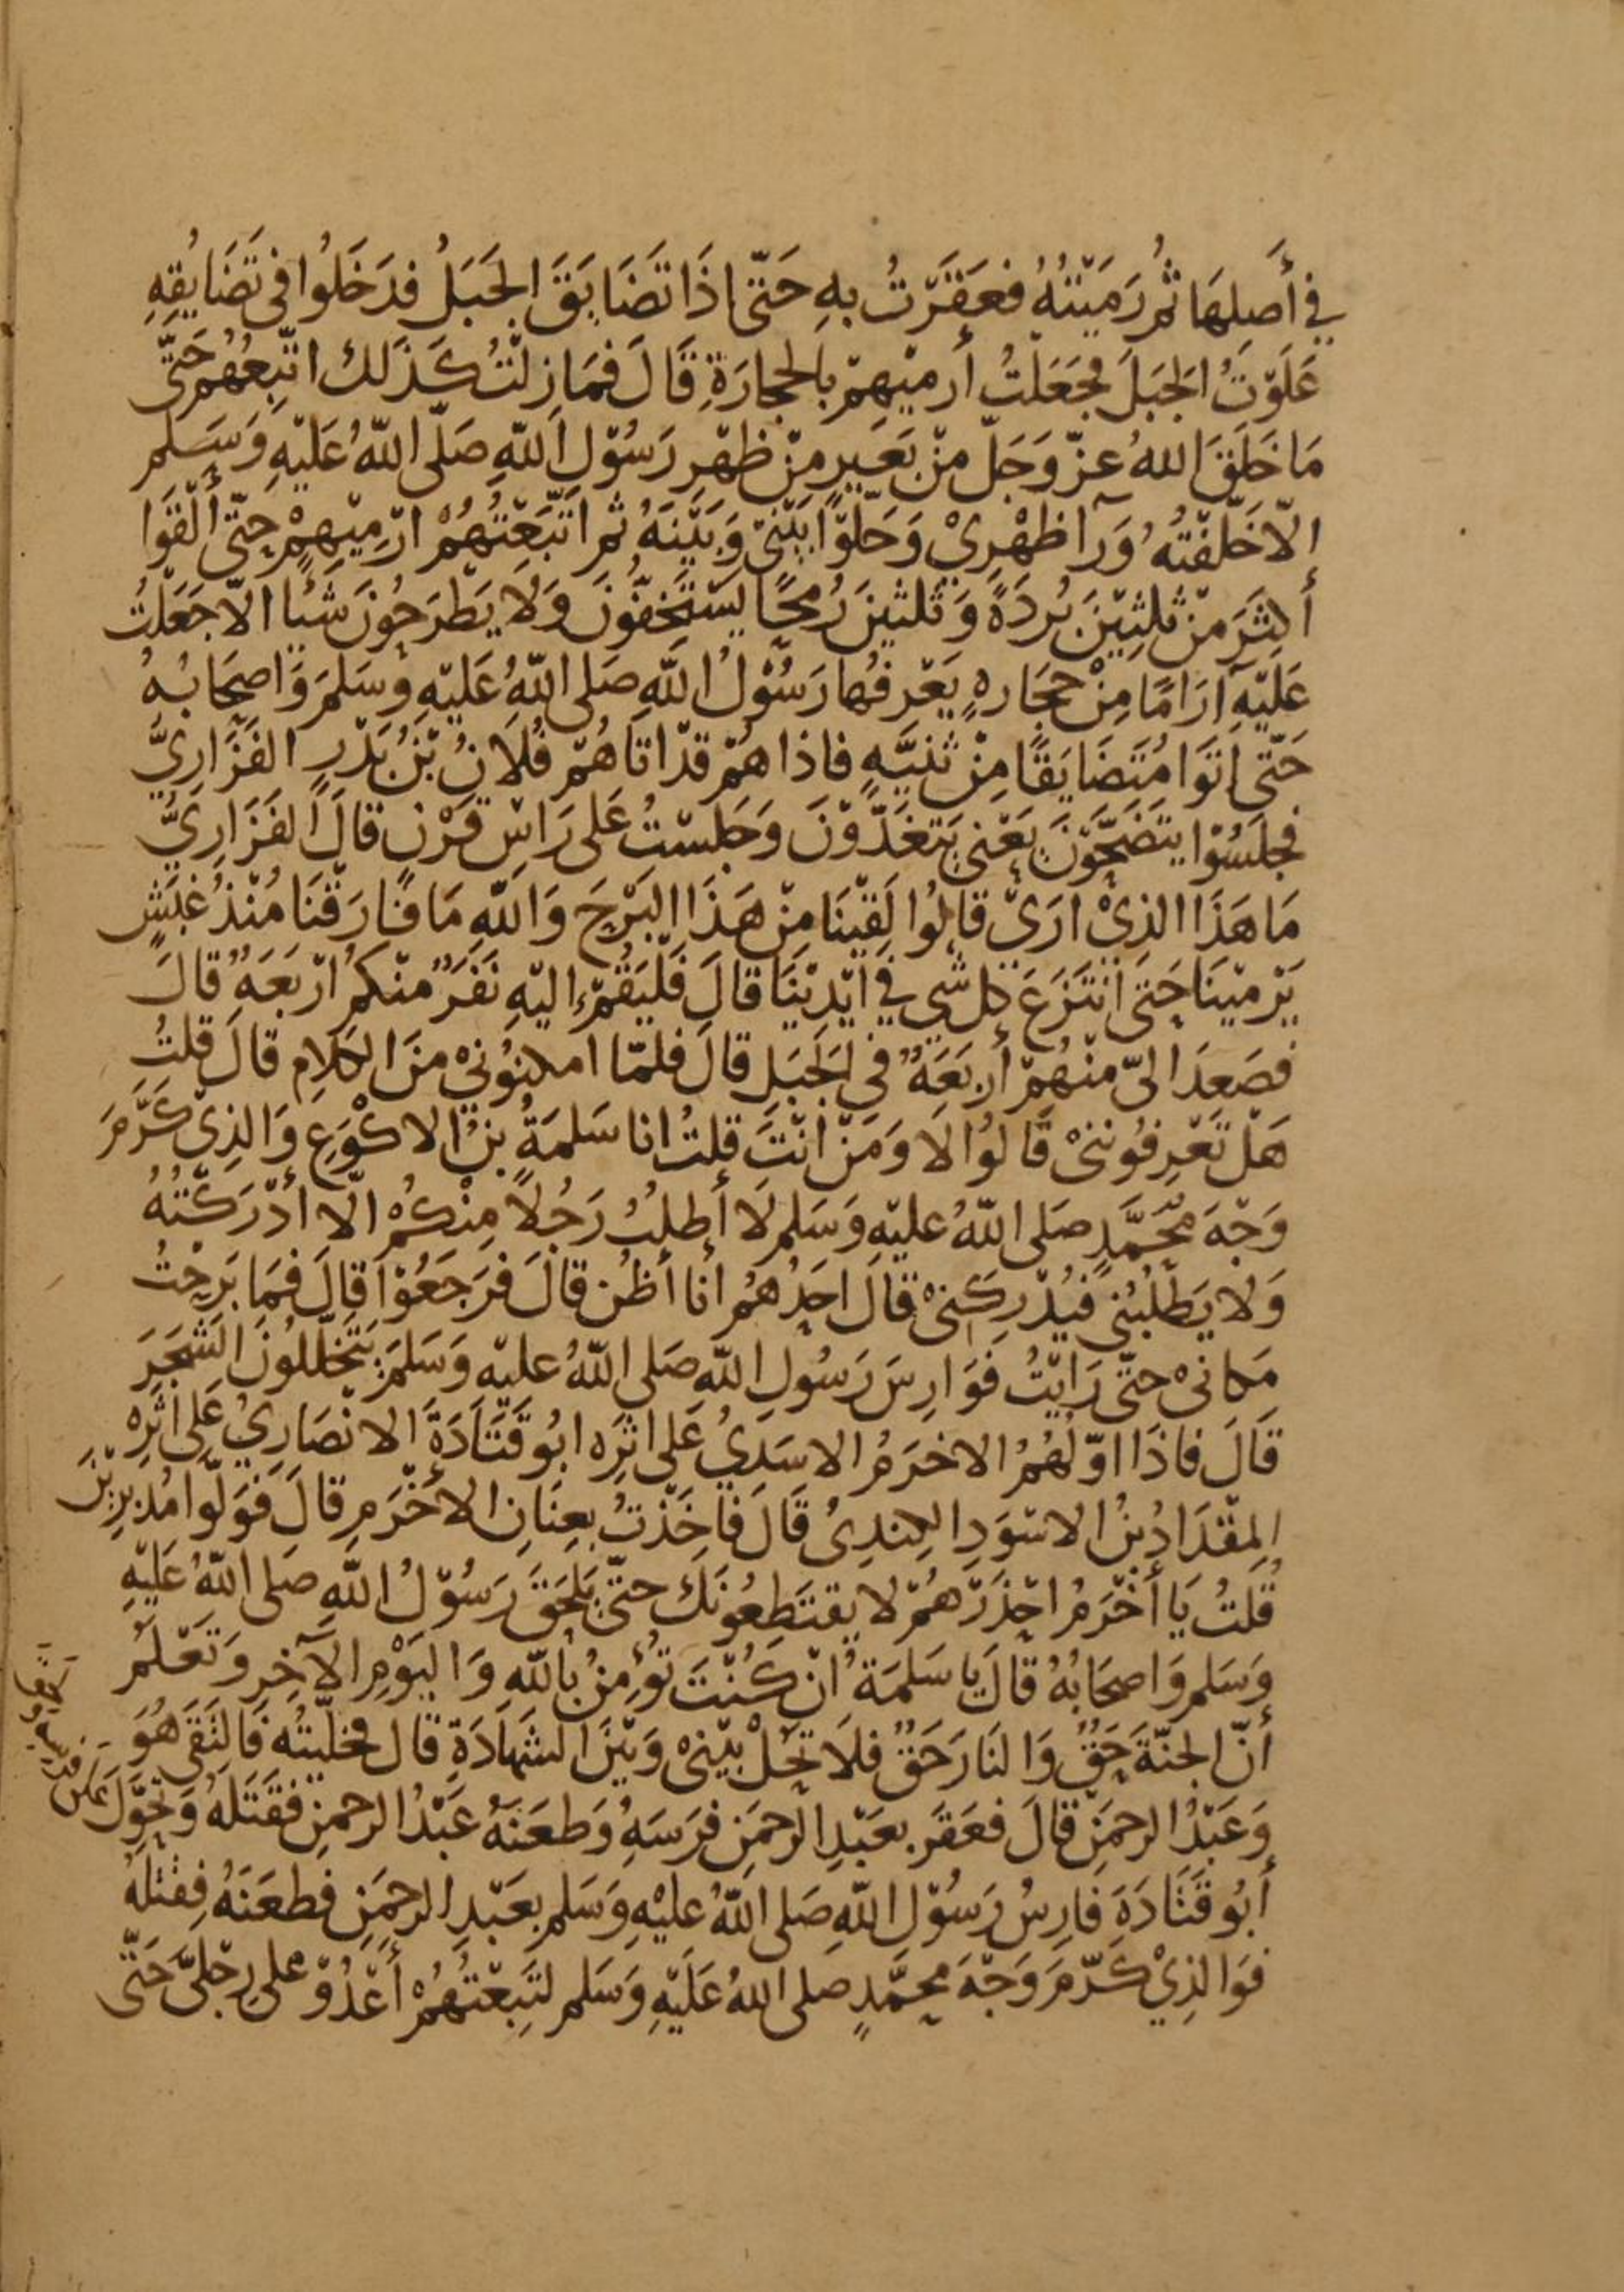 في أَصلِهَا ثُمَّ رَمَيْتُهُ فعَقَرْتُ بهِ حَتّى اذَا تَضَايَقَ الجَبَلُ فدَخَلُوا في تَضَايُقِهِ
عَلَوْتُ الجَبَلَ فجَعَلتُ أَرميْهِمْ بالحجارَةِ قَالَ فَمَا زِلْتُ كَذَلك اتّبِعُهُم حَتَّى
مَا خَلَقَ اللهُ عزّ وَجَلّ مِنْ بَعَيرٍ مِنْ ظَهْرِ رَسُوْلِ اللهِ صَلّى اللهُ عَلَيْهِ وَسَلم
الّا خَلّفْتُه وَرَآ ظَهْرِيْ وَخَلّوْا بَيْنيْ وَبَيْنَهُ ثم اتّبَعْتُهُمْ ارْمِيْهِمْ حتّى أَلقَوا
أكثَرَ مِنْ ثلثِيْنَ بُردَةً وَثَلثينَ رُمحًا يَسْتَخِفّوْنَ وَلا يَطْرَحُونَ شَيْا الّا جَعَلتُ
عَلَيْهِ آرَامًا مِنْ حجَارهٍ يَعْرفُها رَسُوْلُ اللهِ صَلى اللهُ عَليْهِ وَسَلمَ وَاصحَابُهُ
حَتّى اتَوا مُتَضَايَقًا مِنْ ثَنيَّهٍ فاذا هُمْ قدْ اتَاهُمْ فُلَانُ بْنُ بَدْرٍ الفَزَارِيُّ
فجلَسُوْا يتَضَحّوْنَ يَعْني يَتغَدّوْنَ وَجَلسْتُ عَلى رَاسِ قَرْنٍ قالَ الفَزَارِيُّ
مَا هَذَا الذِيْ ارَيْ قالوُا لَقِيْنَا مِنْ هَذَا البَرْحَ وَاللهِ مَا فارَقْنَا مُنْذُ غلَسٍ
يَرْميْنَا حَتى انْتَزَعَ كل شي في ايْدِيْنَا قالَ فَليَقُمْ اليْهِ نَفَرٌ منْكمُ ارْبَعَهٌ قالَ
فصَعدَ اليّ منْهُمْ أَربَعَهٌ في الجَبَلِ قالَ فلمّا امكنوُنيْ منَ الكلَامِ قالَ قلتُ
هَلْ تَعْرِفوُننيْ قَالوُا لَا وَمَنْ انْتَ قلتُ انا سَلمَةُ بنُ الاكْوَعِ وَالذِيْ كَرَّمَ
وَجْهَ مُحَمَّدٍ صَلى اللهُ عليْهِ وَسَلم لَا أطلُبُ رَجُلاً مِنْكمُ الّا أَدْرَكْتُهُ
وَلا يَطْلُبُني فَيُدْرِكَنيْ قالَ احَدُهُمُ أَنا أظُن قالَ فَرَجَعُوْا قالَ فَمَا بَرِحْتُ
مَكانيْ حتّى رَايْتُ فَوَارِسَ رَسُولِ اللهِ صَلى اللهُ عليْهِ وَسَلمَ يَتخَلّلوُنَ الشَجَرَ
قَالَ فاذَا اوّلهُمُ الاخرَمُ الاسَدِيُ عَلى اثرِه ابُو قَتَادَةَ الانْصَارِيُ عَلى اثَرِه
المِقْدَادُ بنُ الاسْوَدِ الكِندِيُ قَالَ فَاخَذْتُ بعِنَانِ الأخْرَمِ قالَ فَوَلّوا مُدبرِيْنَ
قُلتُ يَا أَخْرَمُ احْذَرْهُمْ لا يقتَطِعُونَكَ حتّى يَلحَقَ رَسُوْلُ اللهِ صَلى اللهُ عَليْهِ
وَسَلم وَاصحَابُهُ قالَ يا سَلمَةُ انْ كُنْتَ تُؤمِنُ باللهِ وَاليَوْمِ الآخِرِ وَتَعْلَمُ
أنّ الجنّةَ حَقٌ وَالنَارَ حَقٌ فلَا تحُلْ بيْنيْ وَبَيْنَ الشَهادَةِ قالَ فخلّيْتُه فَالتَقَى هُوَ
وَعَبْدُ الرحمَنِ قالَ فعَقَرَ بعَبْدِ الرحمَنِ فرَسَهُ وَطعَنَهُ عَبْدُ الرحمنِ فقَتَلهُ وَتحَوَّلَ عَلى فرسه
أبُو قَتَادَةَ فارِسُ رَسُوْلِ اللهِ صَلى اللهُ عَليْهِ وَسَلم بعَبْدِ الرحمَنِ فطعَنَهُ فقتَلهُ
فوَالذِيْ كَرّمَ وَجْهَ محمَّدٍ صَلى اللهُ عَلَيْهِ وَسَلم لتَبِعْتُهُمْ أَعْدُوْ على رِجْليَّ حَتّى